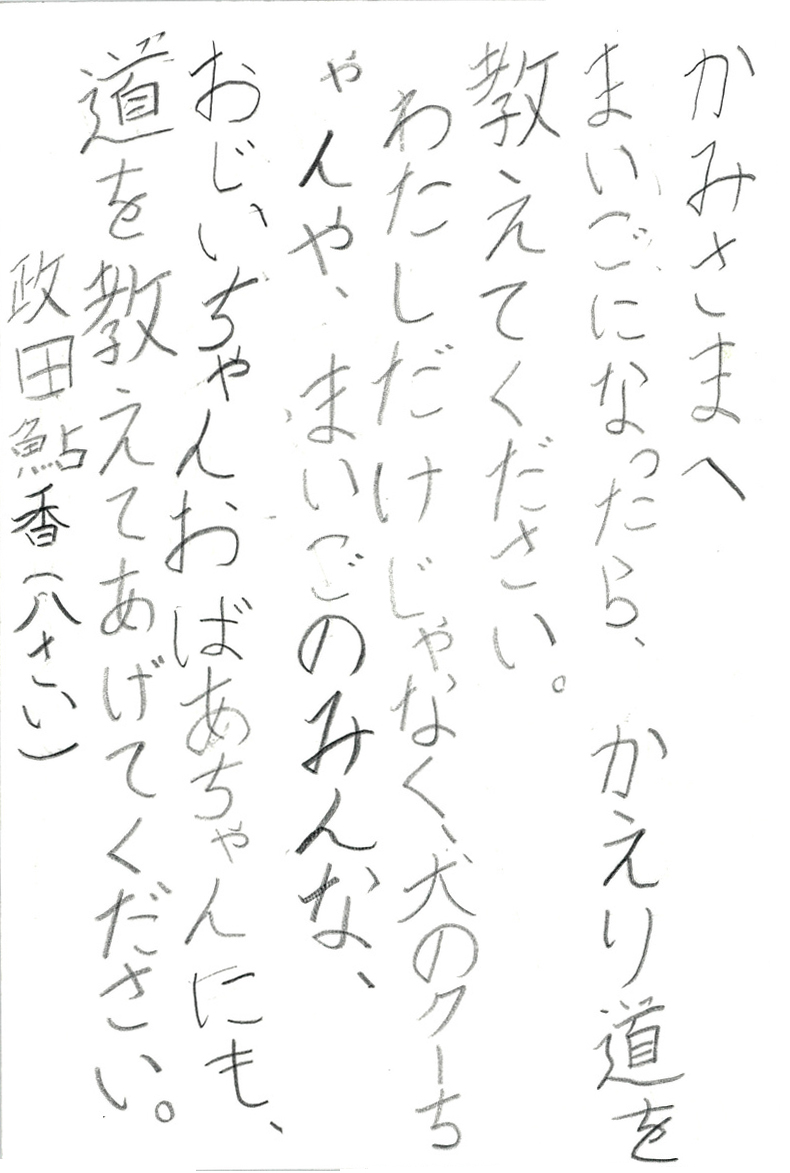 かみさまへ
まいごになったら、かえり道を
教えてください。
わたしだけじゃなく、犬のクーち
ゃんや、まいごのみんな、
おじいちゃんおばあちゃんにも、
道を教えてあげてください。
政田鮎香(八さい)